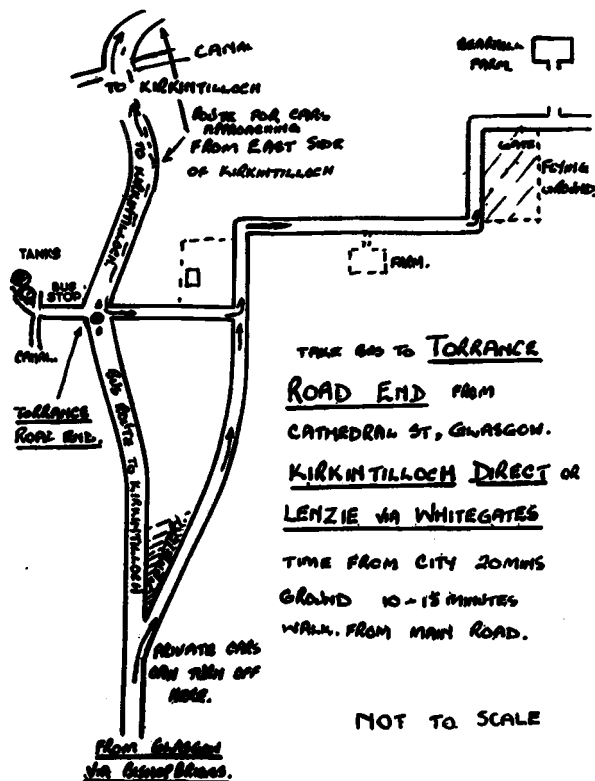 CANAL
TO KIRKINTILLOCH
ROUTE FOR CARS
APPROACHING
FROM EAST SIDE
OF KIRKINTILLOCH
BEARHILL
FARM
GATE
FLYING
GROUND.
TO KIRKINTILLOCH
FARM.
TANKS
BUS
STOP
CANAL
TORRANCE
ROAD END.
BUS ROUTE TO KIRKINTILLOCH
TAKE BUS TO TORRANCE
ROAD END FROM
CATHEDRAL ST, GLASGOW.
KIRKINTILLOCH DIRECT OR
LENZIE VIA WHITEGATES
TIME FROM CITY 20MINS
GROUND 10-15 MINUTES
WALK. FROM MAIN ROAD.
PRIVATE CARS
CAN TURN OFF
HERE.
NOT TO SCALE
FROM GLASGOW
VIA BISHOPBRIGGS.